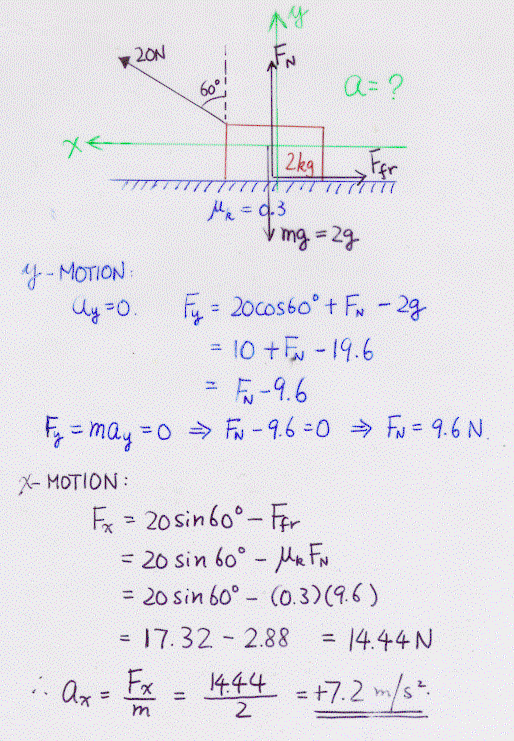 y
20N
F_N
60°
a = ?
x
2kg
F_fr
μ_k = 0.3
mg = 2g
y-MOTION:
a_y = 0. F_y = 20cos60° + F_N - 2g
= 10 + F_N - 19.6
= F_N - 9.6
F_y = ma_y = 0 ⇒ F_N - 9.6 = 0 ⇒ F_N = 9.6 N.
x-MOTION:
F_x = 20 sin 60° - F_fr
= 20 sin 60° - μ_k F_N
= 20 sin 60° - (0.3)(9.6)
= 17.32 - 2.88 = 14.44 N
∴ a_x = F_x/m = 14.44/2 = +7.2 m/s².